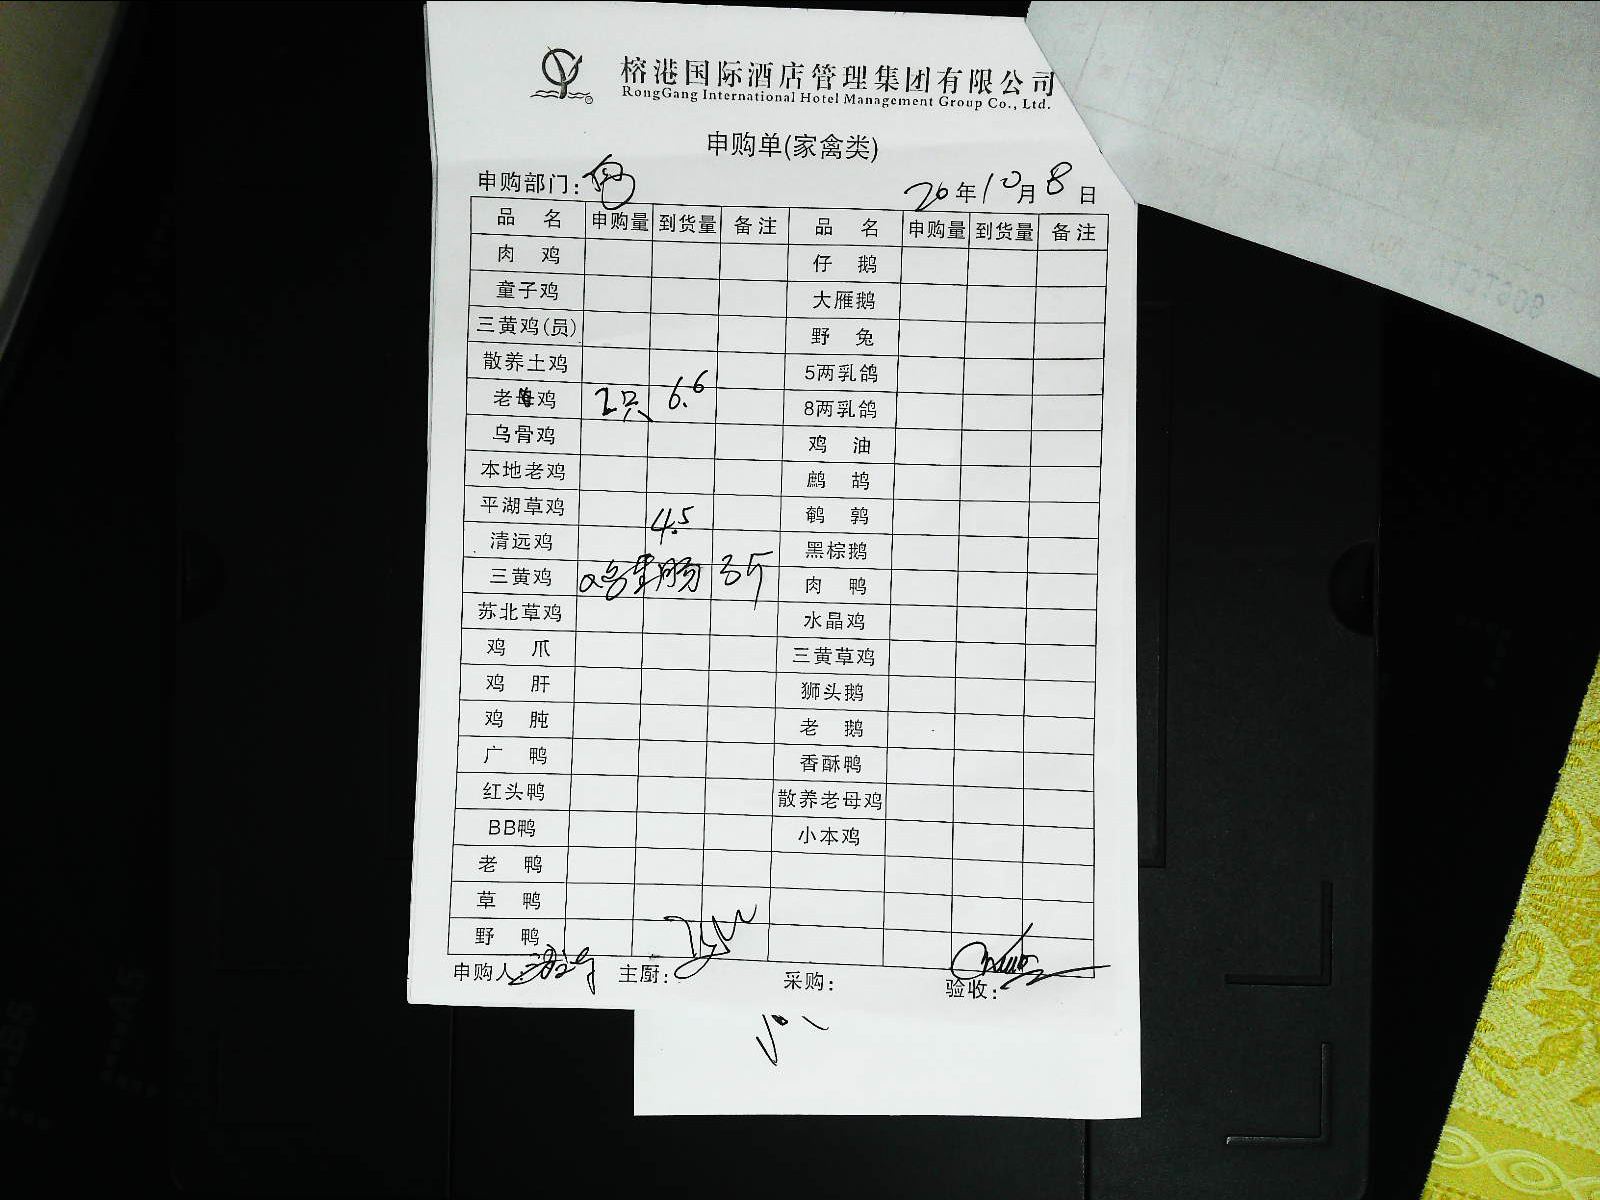 榕港国际酒店管理集团有限公司
RongGang International Hotel Management Group Co., Ltd.
申购单(家禽类)
申购部门:
20年10月8日
品 名 申购量 到货量 备注 品 名 申购量 到货量 备注
肉 鸡 仔 鹅
童子鸡 大雁鹅
三黄鸡(员) 野 兔
散养土鸡 5两乳鸽
老母鸡 2只 6.6 8两乳鸽
乌骨鸡 鸡 油
本地老鸡 鹧 鸪
平湖草鸡 鹌 鹑
4.5
清远鸡 黑棕鹅
三黄鸡 肠 3斤 肉 鸭
苏北草鸡 水晶鸡
鸡 爪 三黄草鸡
鸡 肝 狮头鹅
鸡 肫 老 鹅
广 鸭 香酥鸭
红头鸭 散养老母鸡
BB鸭 小本鸡
老 鸭
草 鸭
野 鸭
申购人: 主厨: 采购: 验收: